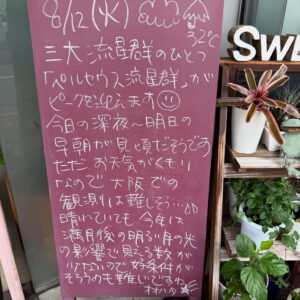 8/12(火)
32℃
三大流星群のひとつ
「ペルセウス流星群」が
ピークを迎えます
今日の深夜〜明日の
早朝が見頃だそうです
ただお天気がくもり
なので大阪での
観測は難しそう…
晴れていても今年は
満月後の明るい月の光
の影響で見える数が
少ないので好条件が
そろうのも難しいですね
SWE